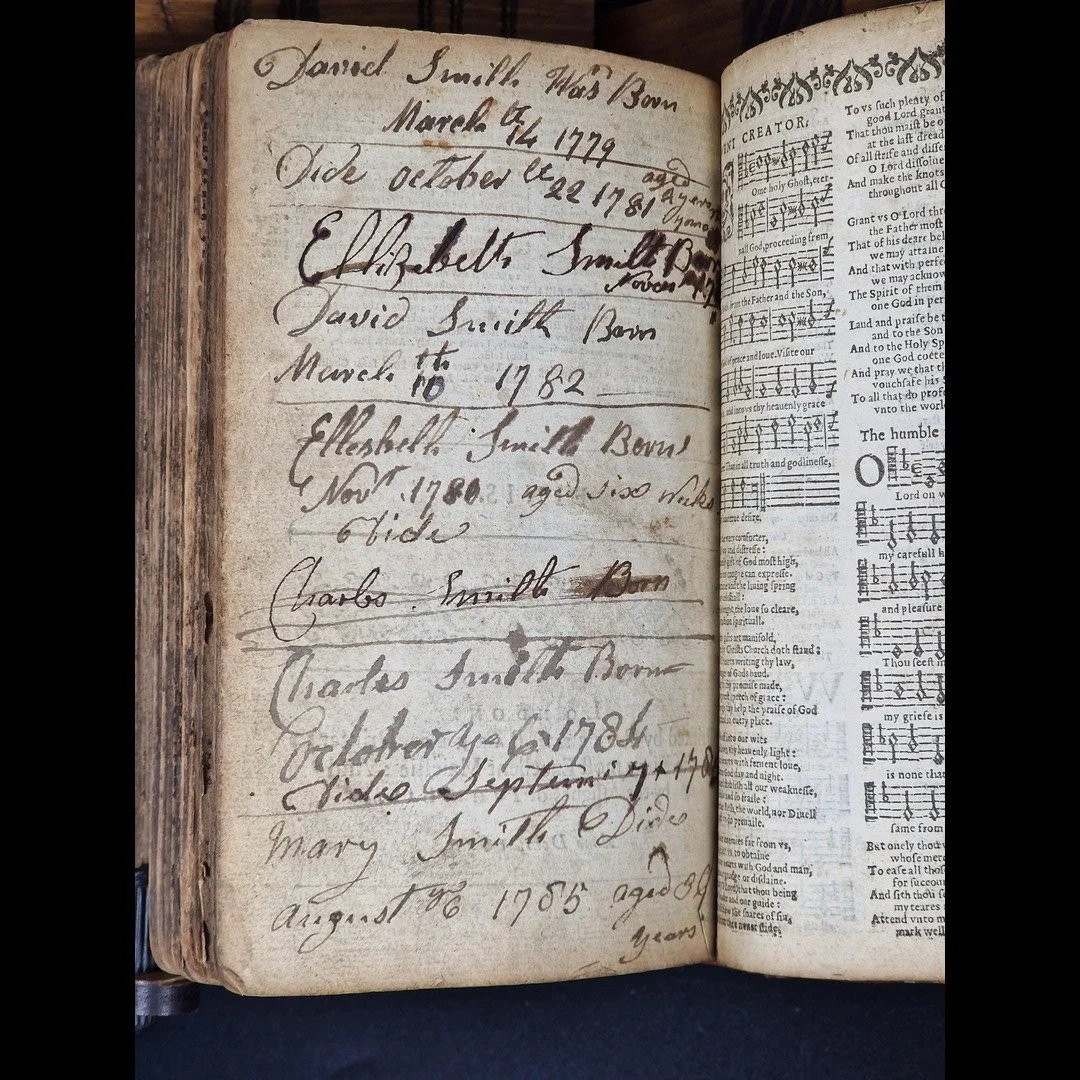 David Smith Was Born
March th 14 1779
Dide october th 22 1781 aged
2 years
Ellizabelth Smith Born
Novem
David Smith Born
March th 10 1782
Ellesbelth Smith Born
Novr 1780 aged six weeks
Dide
Charles Smith Born
Charles Smith Born
october ye 6 1784
dide Septem
Mary Smith Dide
august ye 6 1785 aged 36
years
NT CREATOR.
One holy Ghost, eter-
nall God, proceeding from
from the Father and the Son,
of peace and loue. Visite our
and into vs thy heauenly grace
That in all truth and godlinesse,
true desire.
very comforter,
and distresse:
gift of God most high,
tongue can expresse.
and the liuing spring
the loue so cleare,
spirituall.
gifts art manifold,
Christs Church doth stand:
hearts writing thy law,
of Gods hand.
thy promise made,
speech of grace:
thy help the praise of God
in euery place.
into our wits
thy heauenly light:
hearts with feruent loue,
God day and night.
stablish all our weaknesse,
and so fraile:
flesh, the world, nor Diuell
prevaile.
enemies far from vs,
to obtaine
hearts with God and man,
grudge or disdaine.
that thou being
and our guide:
the snares of sin,
neuer slide.
To vs such plenty of
good Lord grant
That thou maist be o
at the last dread
Of all strife and disse
O Lord dissolue
And make the knots
throughout all C
Grant vs O Lord thr
the Father most
That of his deare bel
we may attaine
And that with perfe
we may acknow
The Spirit of them
one God in per
Laud and praise be t
and to the Son
And to the Holy Sp
one God coëte
And pray we that th
vouchsafe his S
To all that do profe
vnto the worl
The humble
O
Lord on w
my carefull h
and pleasure
Thou seest m
my griefe is
is none that
same from
But onely thou w
whose mere
To ease all thos
for succour
And sith thou s
my teares a
Attend vnto m
mark well